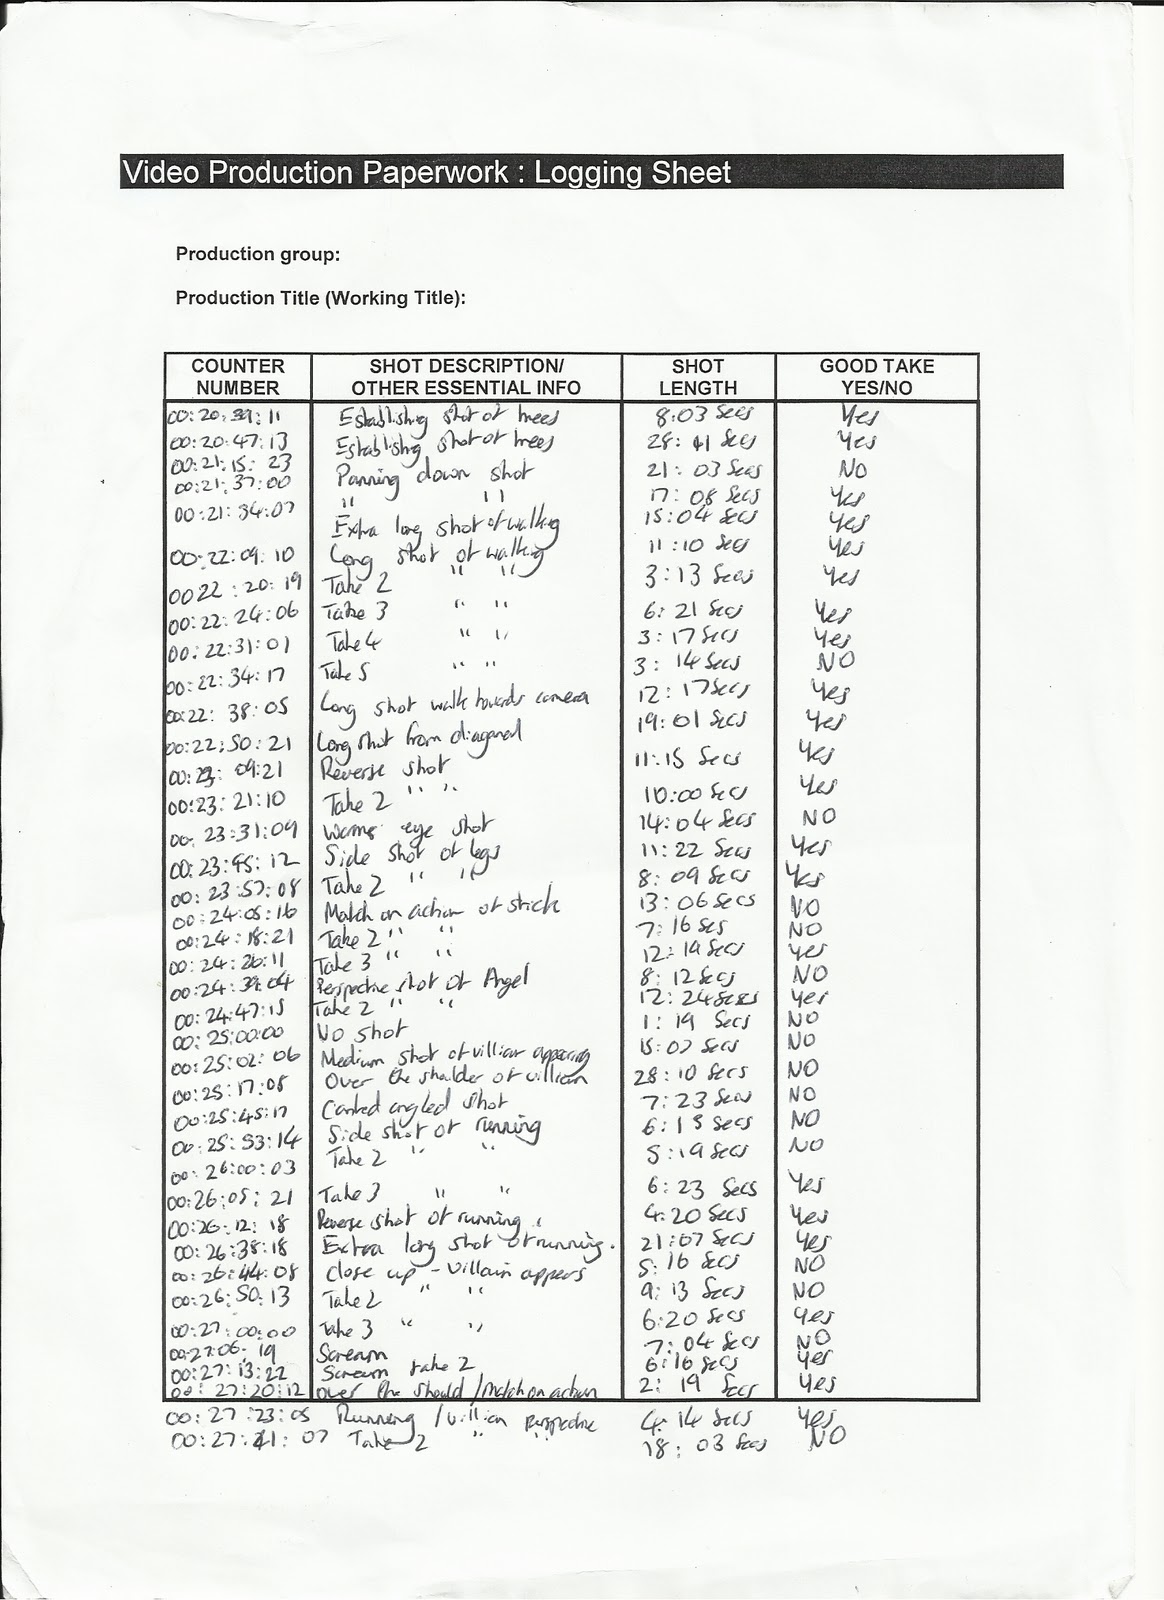 Video Production Paperwork : Logging Sheet
Production group:
Production Title (Working Title):
COUNTER NUMBER SHOT DESCRIPTION/ OTHER ESSENTIAL INFO SHOT LENGTH GOOD TAKE YES/NO
00:20:39:11 Establishing shot of trees 8:03 Secs Yes
00:20:47:13 Establishing shot of trees 28:11 Secs Yes
00:21:15:23 Panning down shot 21:03 Secs NO
00:21:37:00 " " 17:08 Secs Yes
00:21:34:07 Extra long shot of walking 15:04 Secs Yes
00:22:09:10 Long shot of walking 11:10 Secs Yes
0022:20:19 Take 2 " " 3:13 Secs Yes
00:22:24:06 Take 3 " " 6:21 Secs Yes
00:22:31:01 Take 4 " " 3:17 Secs Yes
00:22:34:17 Take 5 " " 3:14 Secs NO
00:22:38:05 Long shot walk towards camera 12:17 Secs Yes
00:22:50:21 Long shot from diagonal 19:01 Secs Yes
00:23:09:21 Reverse shot 11:15 Secs Yes
00:23:21:10 Take 2 " " 10:00 Secs Yes
00:23:31:09 Worms eye shot 14:04 Secs NO
00:23:45:12 Side shot of legs 11:22 Secs Yes
00:23:57:08 Take 2 " " 8:09 Secs Yes
00:24:05:16 Match on action of stick 13:06 Secs NO
00:24:18:21 Take 2 " " 7:16 Secs NO
00:24:26:11 Take 3 " " 12:19 Secs Yes
00:24:39:04 Perspective shot of Angel 8:12 Secs NO
00:24:47:15 Take 2 " " 12:24 Secs Yes
00:25:00:00 No shot 1:19 Secs NO
00:25:02:06 Medium shot of villian appearing 15:07 Secs NO
00:25:17:08 Over the shoulder of villian 28:10 Secs NO
00:25:45:17 Canted angled shot 7:23 Secs NO
00:25:53:14 Side shot of running 6:15 Secs NO
00:26:00:03 Take 2 " " 5:19 Secs NO
00:26:05:21 Take 3 " " 6:23 Secs Yes
00:26:12:18 Reverse shot of running 4:20 Secs Yes
00:26:38:18 Extra long shot of running. 21:07 Secs Yes
00:26:44:08 Close up - Villain appears 5:16 Secs NO
00:26:50:13 Take 2 " " 9:13 Secs NO
00:27:00:00 Take 3 " " 6:20 Secs Yes
00:27:06:19 Scream 7:04 Secs NO
00:27:13:22 Scream take 2 6:16 Secs Yes
00:27:20:12 over the should /Match on action 2:19 Secs Yes
00:27:23:05 Running /villian perspective 4:14 Secs Yes
00:27:41:07 Take 2 " " 18:03 Secs NO